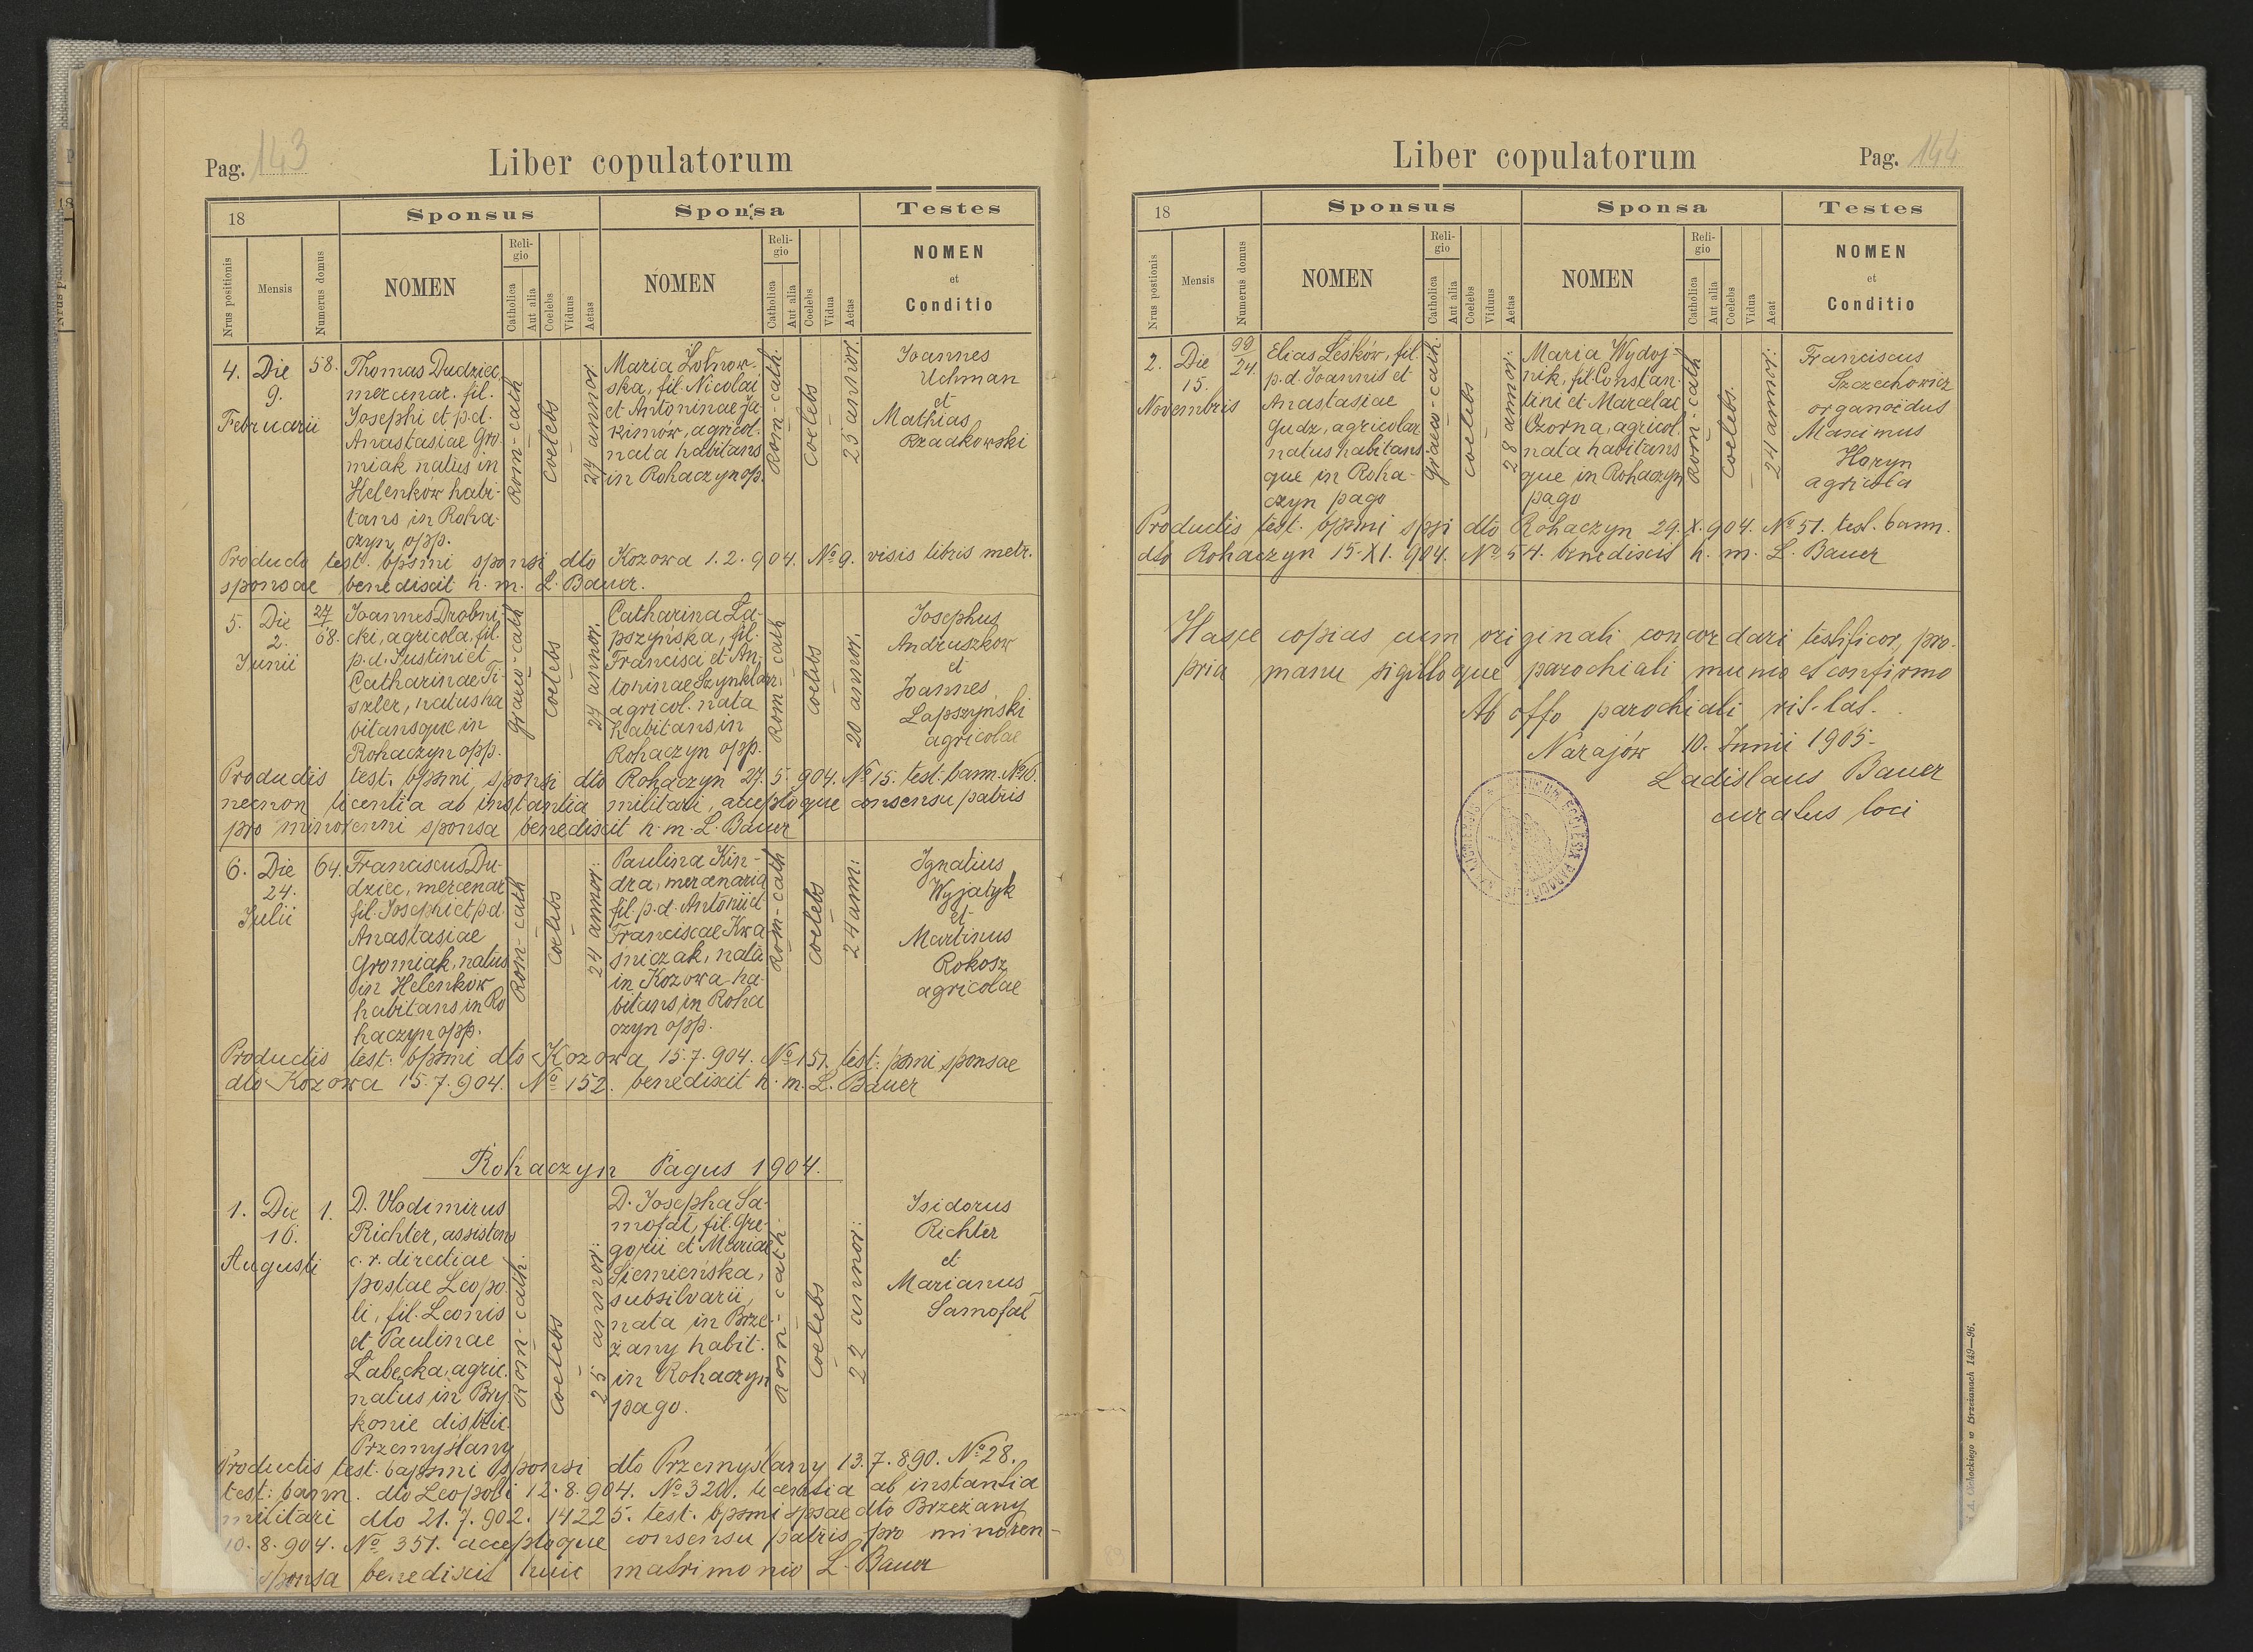 Pag. 143
Liber copulatorum
18
Sponsus
Sponsa
Testes
Nrus positionis
Mensis
Numerus domus
NOMEN
Religio
Catholica
Aut alia
Coelebs
Viduus
Aetas
NOMEN
Religio
Catholica
Aut alia
Coelebs
Vidua
Aetas
NOMEN
et
Conditio
4.
Die
9.
Februarii
58.
Thomas Dudziec,
mercenar. fil.
Josephi et p.d.
Anastasiae Gro-
miak natus in
Helenków habi-
tans in Roha-
czyn opp.
Rom-cath
Coelebs
27 annor.
Maria
ska, fil. Nicolai
et Antoninae Ja-
kimów, agricol.
nata habitans
in Rohaczyn opp.
Rom-cath.
Coelebs
23 annor.
Joannes
Uchman
et
Mathias
Rzadkowski
Producto test. bpsmi sponsi dto Kozowa 1.2.904. No 9. visis libris metr.
sponsae benedixit h. m. L. Bauer.
5.
Die
2.
Junii
27
58.
Joannes Drobni-
cki, agricola, fil.
p.d. Justini et
Catharinae Ti-
szler, natus ha
bitansque in
Rohaczyn opp.
Graeco-cath
Coelebs
24 annor.
Catharina Ła-
pszyńska, fil.
Francisci et An-
toninae Szynklar,
agricol. nata
habitans in
Rohaczyn opp.
Rom cath
Coelebs
20 annor.
Josephus
Andruszkow
et
Joannes
Łapszyński
agricolae
Productis test. bpsmi sponsi dto Rohaczyn 27.5.904. No 15. test. bann. No 16.
necnon licentia ab instantia militari, acceptoque consensu patris
pro minorenni sponsa benedixit h. m. L. Bauer
6.
Die
24.
Julii
64.
Franciscus Du-
dziec, mercenar
fil. Josephi et p.d.
Anastasiae
Gromiak, natus
in Helenków
habitans in Ro
haczyn opp.
Rom-cath
Coelebs
24 annor:
Paulina Kin-
dra, mercenaria
fil. p.d. Antonii et
Franciscae Kwa
śniczak, nata
in Kozowa ha-
bitans in Roha
czyn opp.
Rom-cath
Coelebs
24 ann:
Ignatius
Wyjatyk
et
Martinus
Rokosz
agricolae
Productis test. bpsmi dto Kozowa 15.7.904. No 151. test. psmi sponsae
dto Kozowa 15.7.904. No 152. benedixit h. m. L. Bauer
Rohaczyn Pagus 1904.
1.
Die
16.
Augusti
1.
D. Vlodimirus
Richter, assistens
c. r. directiae
postae Leopo-
li, fil. Leonis
et Paulinae
Łabęcka, agric.
natus in Bry
konie distric.
Przemyślany
Rom-cath.
Coelebs
25 annor:
D. Josepha Sa-
mofał, fil. Gre-
gorii et Mariae
Siemieńska,
subsilvarii,
nata in Brze-
żany habit.
in Rohaczyn
pago.
Rom-cath.
Coelebs
22 annor:
Isidorus
Richter
et
Marianus
Samofał
Productis test. bapsmi sponsi dto Przemyślany 13.7.890. No 28.
test: bann. dto Leopoli 12.8.904. No 320. licentia ab instantia
militari dto 21.7.902. 14225. test. bpsmi spsae dto Brzeżany
10.8.904. No 351. acceptoque consensu patris pro minoren-
sponsa benedixit huic matrimonio L. Bauer
Liber copulatorum
Pag. 144
18
Sponsus
Sponsa
Testes
Nrus postionis
Mensis
Numerus domus
NOMEN
Religio
Catholica
Aut alia
Coelebs
Viduus
Aetas
NOMEN
Religio
Catholica
Aut alia
Coelebs
Vidua
Aeat
NOMEN
et
Conditio
2.
Die
15.
Novembris
99
24.
Elias Leśków, fil.
p.d. Joannis et
Anastasiae
Gudz, agricolar
natus habitans-
que in Roha-
czyn pago
Graeco-cath.
Coelebs
28 annor:
Maria Wydoj-
nik, fil. Constan-
tini et Marcelae
Czorna, agricol.
nata habitans
que in Rohaczyn
pago
Rom-cath
Coelebs.
24 annor:
Franciscus
Szczechowicz
organoedus
Maximus
Haryn
agricola
Productis test. bpsmi spsi dto Rohaczyn 29.X.904. No 51. test. bann.
dto Rohaczyn 15.XI.904. No 54. benedixit h. m. L. Bauer
Hasce copias cum originali concordari testificor, pro-
pria manu sigilloque parochiali munio et confirmo
Ab offo parochiali rit. lat.
Narajów 10. Junii 1905.
Ladislaus Bauer
curatus loci
Ochockiego w Brzeżanach 149—96.